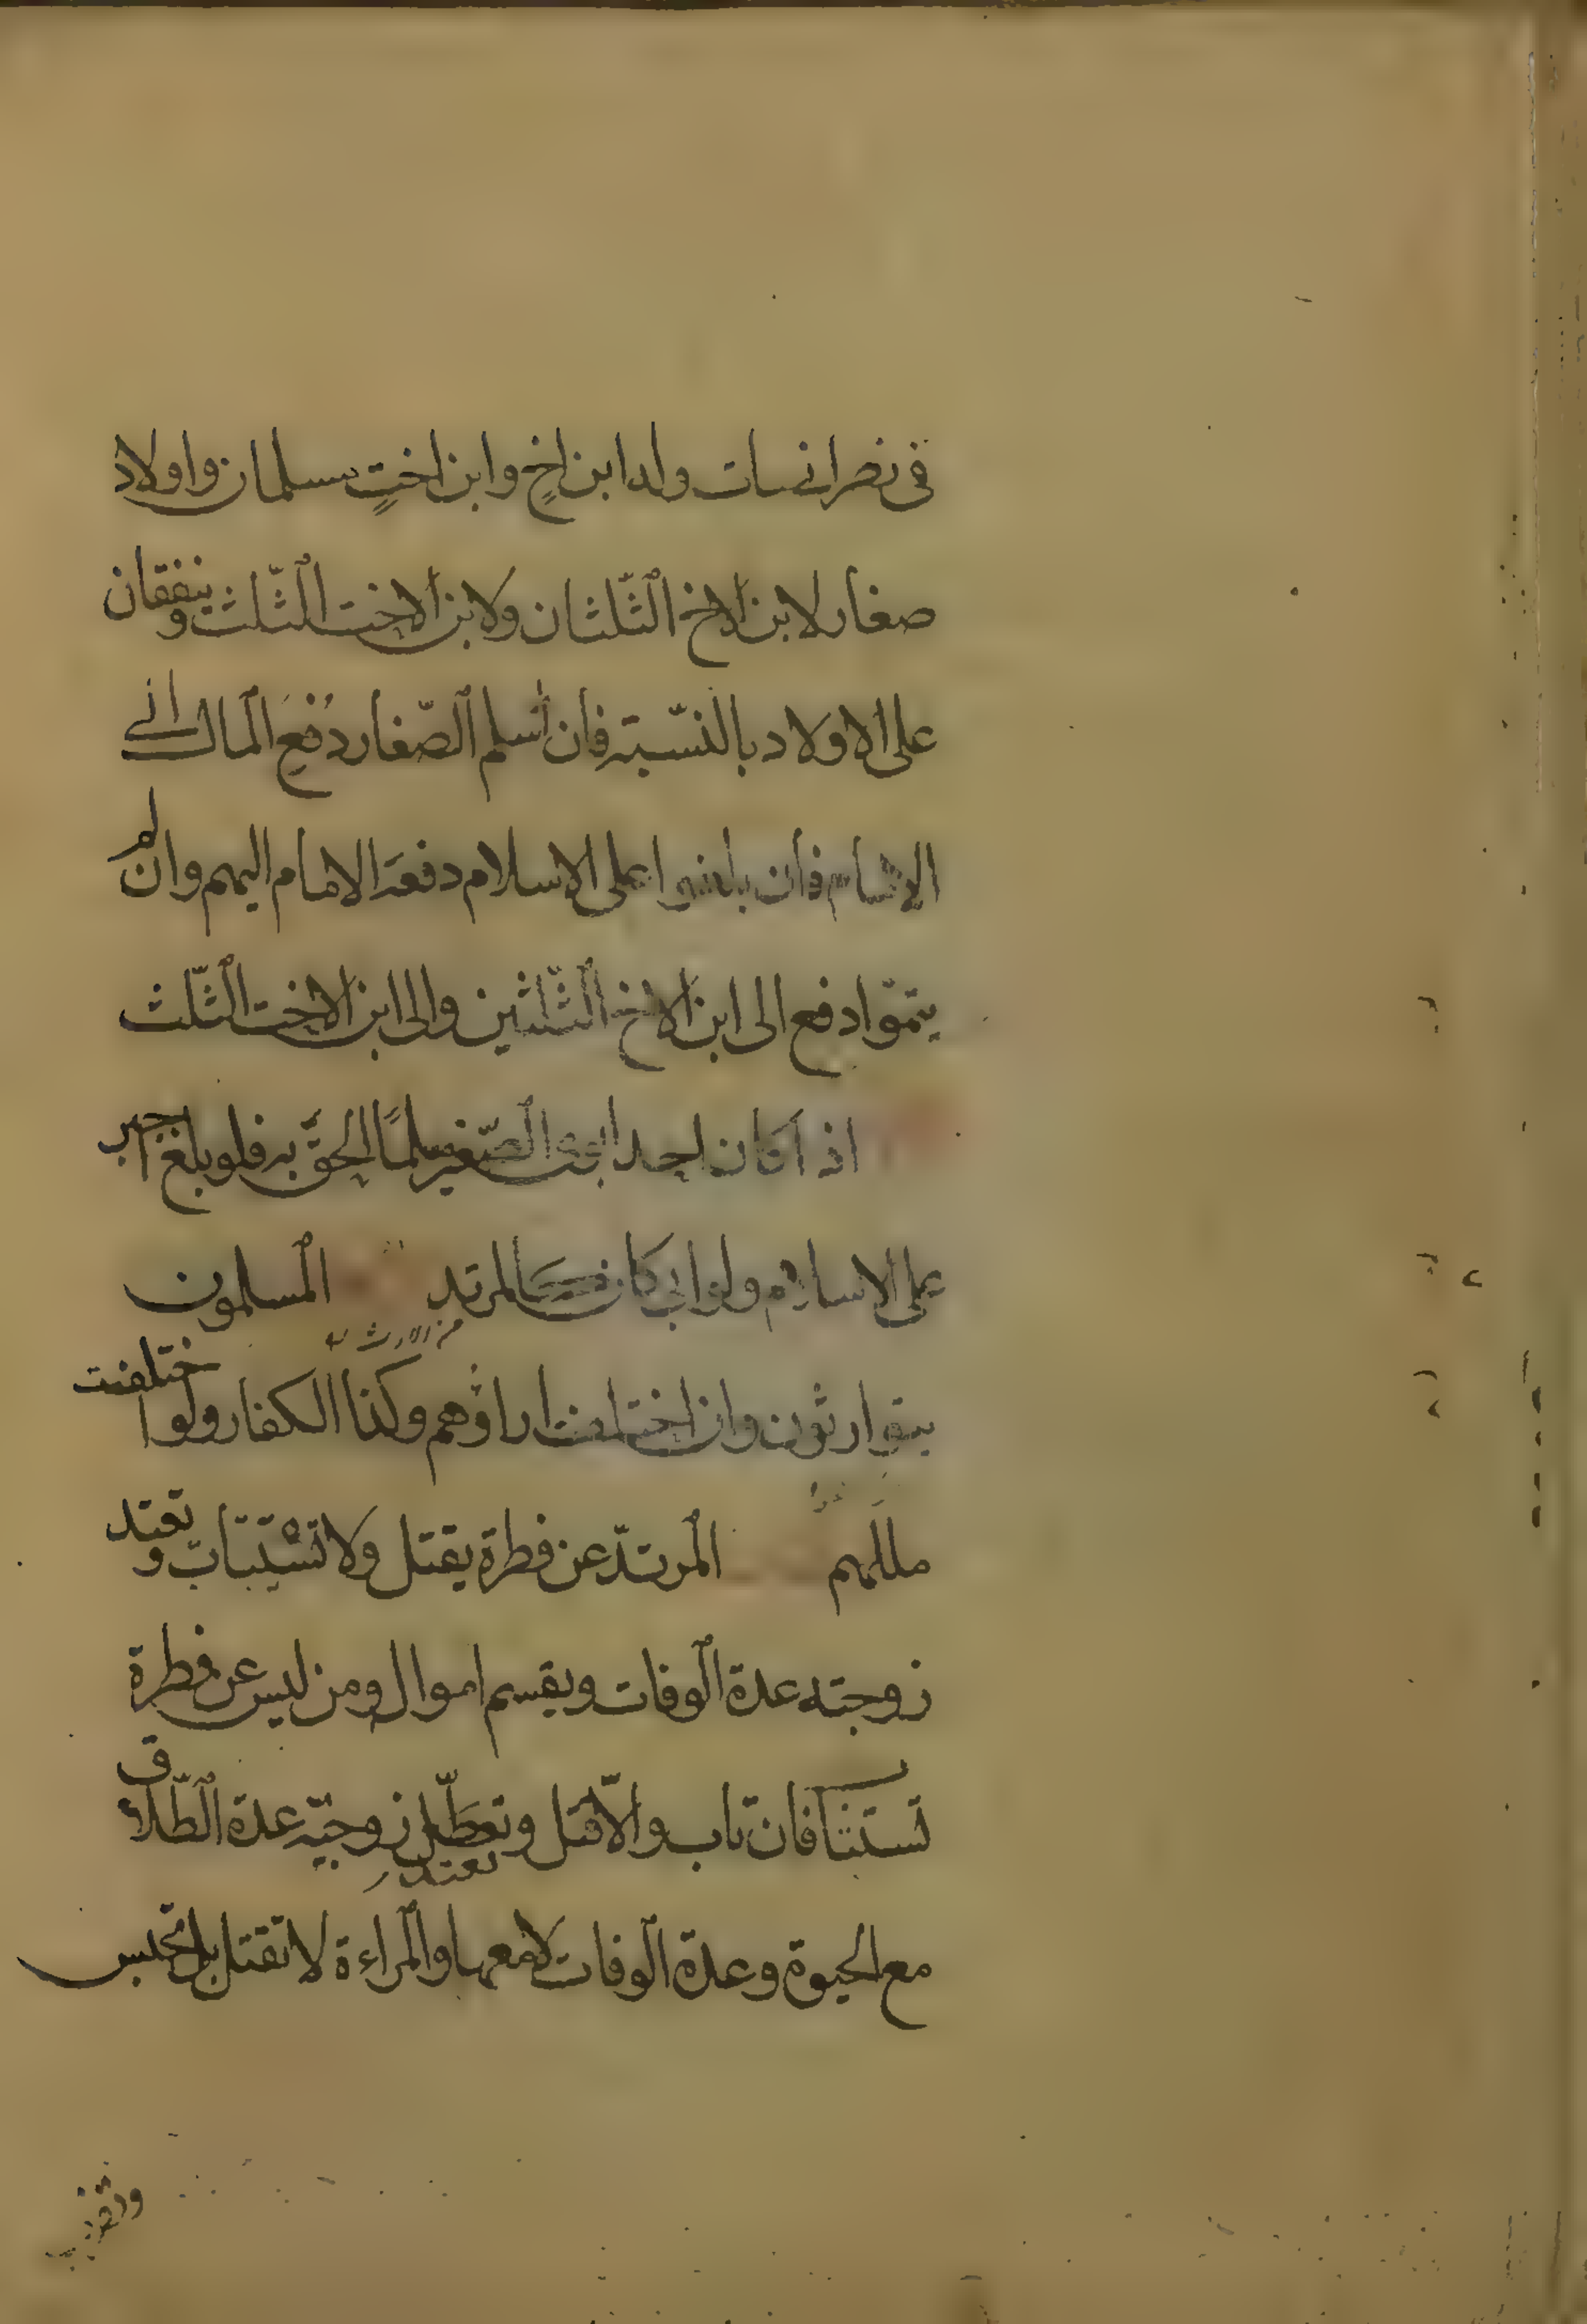 فى نصرانى مات وله ابن اخٍ وابن اختٍ مسلمان واولاد
صغار لابن الاخ الثّلثان ولابن الاخت الثّلث وينفقان
على الاولاد بالنّسبة فان اسلم الصّغار دُفِعَ المال الى
الامام فان بلغوا على الاسلام دفعه الامام اليهم وان لم
يتمّوا دفع الى ابن الاخ الثّلثين والى ابن الاخت الثّلث
اذا كان احد ابوى الصّغير مسلمًا الحق به فلو بلغ اجبر
على الاسلام ولو ابى كان كالمرتد المسلمون
يتوارثون وان اختلفت اراؤهم وكذا الكفار ولو اختلفت
مللهم المرتدّ عن فطرة يقتل ولا تستتاب وتعتد
زوجته عدة الوفات ويقسم امواله ومن ليس عن فطرة
تستتاب فان تاب والّا قتل وتعتد زوجته عدة الطّلاق
مع الحيوة وعدة الوفات لا معها والمراءة لا تقتل بل تحبس
وتضرب